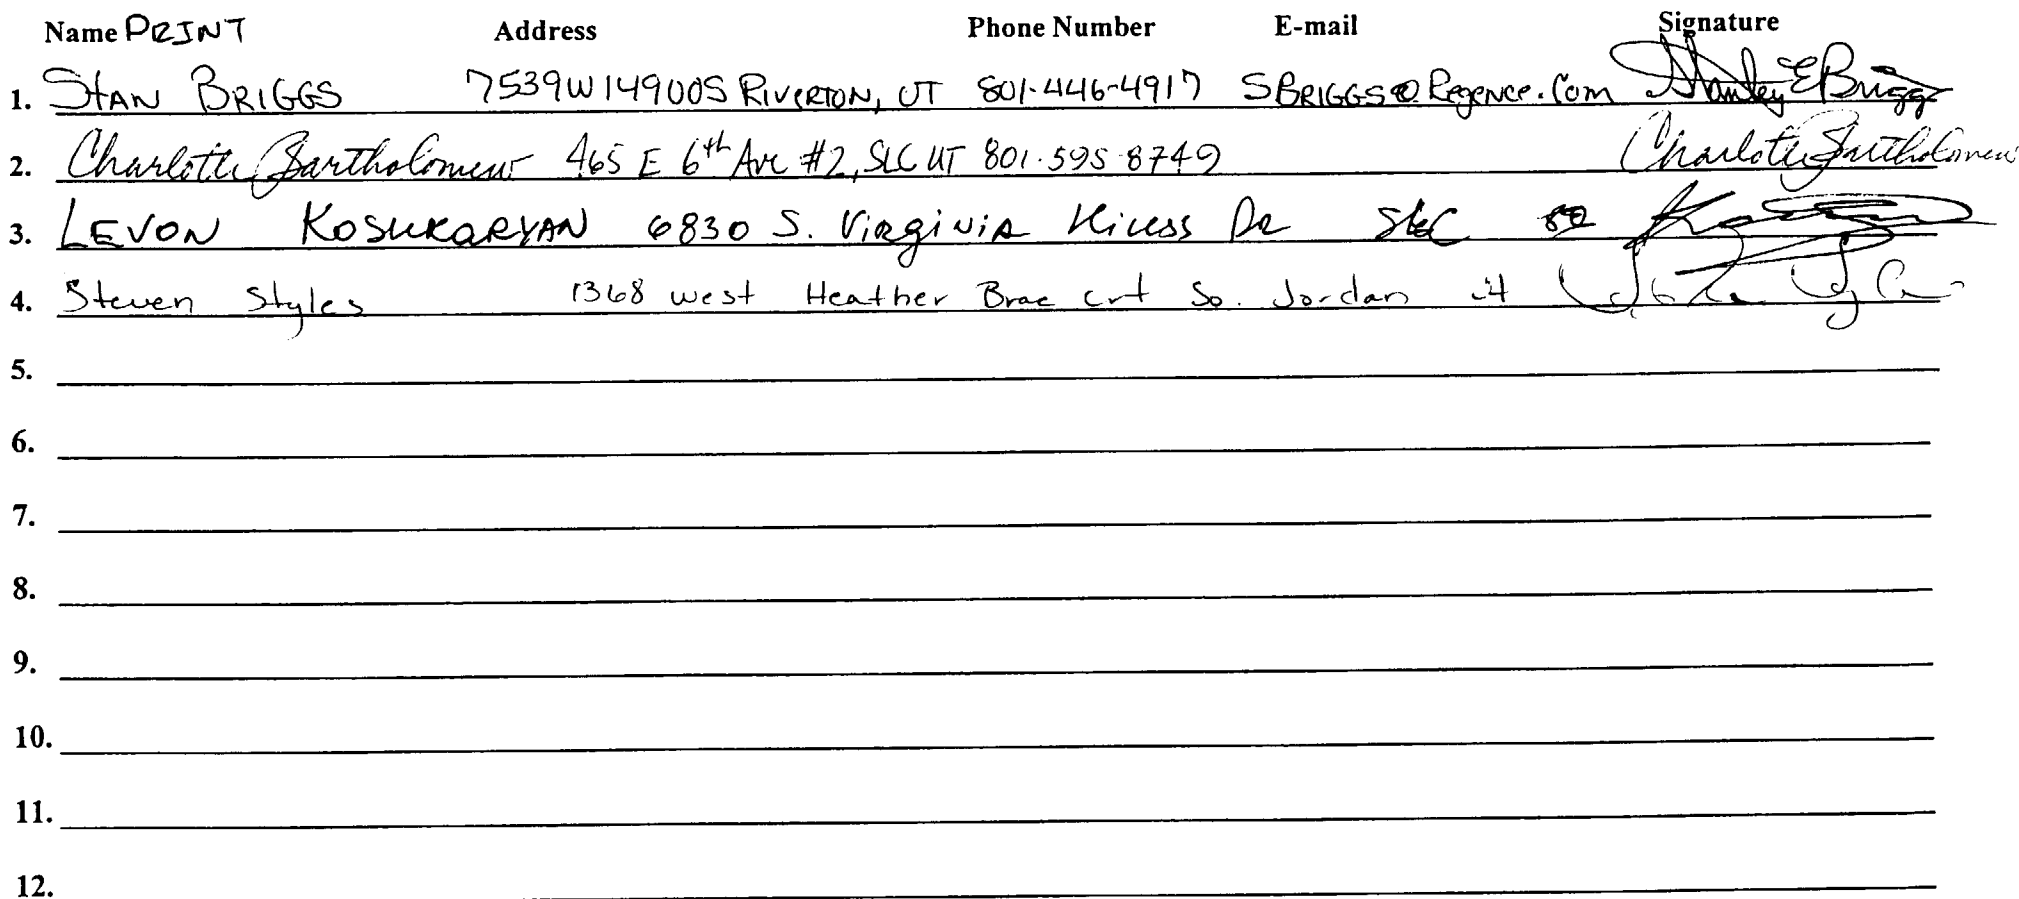 Name PRINT Address Phone Number E-mail Signature
1. STAN BRIGGS 7539W 14900S RIVERTON, UT 801-446-4917 SBRIGGS@Regence.Com Stanley E Briggs
2. Charlotte Bartholomew 465 E 6th Ave #2, SLC UT 801-595-8749 Charlotte Bartholomew
3. LEVON 6830 S. Virginia Dr SLC
4. Steven Styles 1368 west Heather Brae crt So. Jordan ut
5.
6.
7.
8.
9.
10.
11.
12.